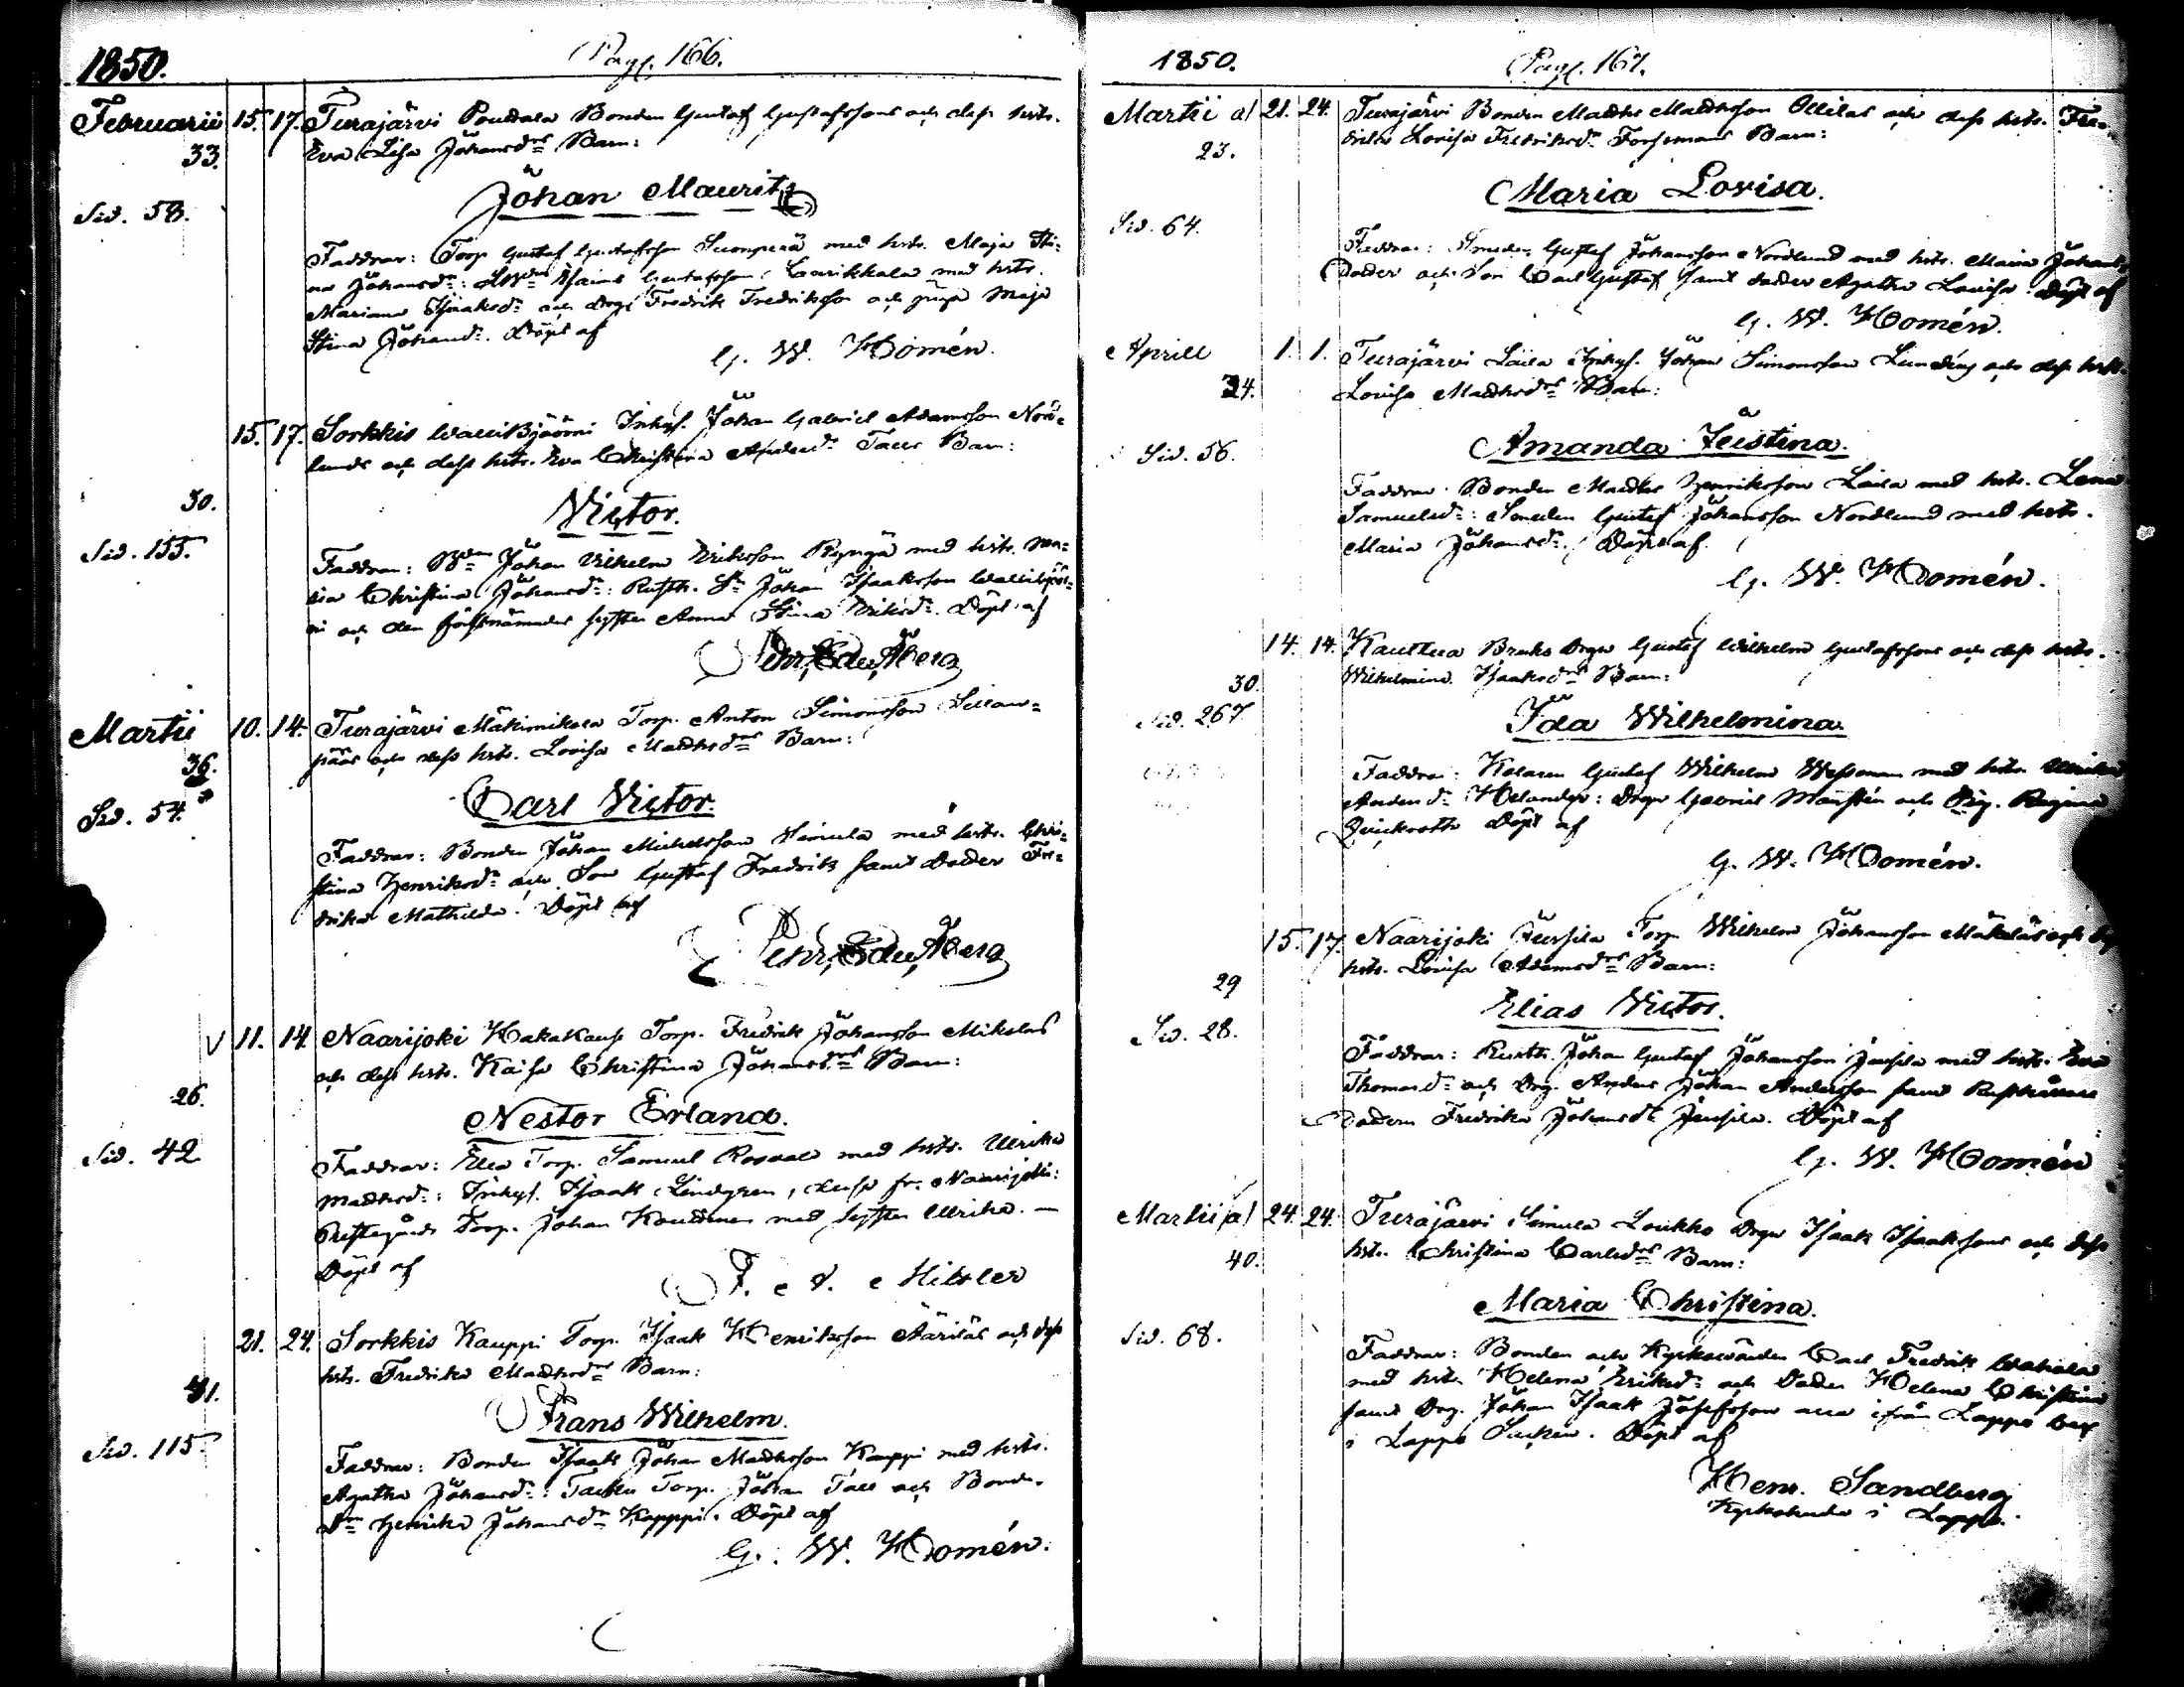 1850.
Pag. 166.
Februarii 15. 17. Turajärvi Bonden Gustaf Gustafssons och dess hstr.
33. Eva Lisa Johansdrs Barn:
Johan Maurits
Sid. 58.
Faddrar: Torp. Gustaf Gustafsson Suonperä med hstr. Maja Sti-
na Johansdr: Gustafsson Laurikkala med hstr.
Mariana Isaaksdr och Drgn Fredrik Fredriksson och pigan Maja
Stina Johansdr. Döpt af
G. W. Homén.
15. 17. Sorkkis Inhys. Johan Gabriel Adamsson Nord-
lunds och dess hstr. Eva Christina Andersdr Barn:
30. Victor.
Sid. 155.
Faddrar: Johan Vilhelm Eriksson med hstr. Ma-
ria Christina Johansdr: Rusth. Sn Johan Isaaksson
och den förstnämndes syster Anna Stina Eriksdr. Döpt af
Pehr Edu. Åberg
Martii 10. 14. Turajärvi Mäkimikola Torp. Anton Simonsson
och dess hstr. Lovisa Mathsdrs Barn:
36.
Carl Victor.
Sid. 54.
Faddrar: Bonden Johan Michelsson Simula med hstr. Chri-
stina Henriksdr och Son Gustaf Fredrik samt Dotter Fre-
drika Mathilda. Döpt af
Pehr Edu. Åberg
11. 14. Naarijoki Torp. Fredrik Johansson Mikolas
och dess hstr. Kaisa Christina Johansdrs Barn:
26.
Nestor Erland.
Sid. 42
Faddrar: Torp. Samuel Rosdal med hstr. Ulrika
Mathsdr: Inhys. Isaak Lindgren, fr. Naarijoki:
Prestegårds Torp. Johan med syster Ulrika. —
Döpt af
F. A. Hitsler
21. 24. Sorkkis Kauppi Torp. Isaak Henriksson Äärilás och dess
hstr. Fredrika Mathsdrs Barn:
31.
Frans Wilhelm.
Sid. 115.
Faddrar: Bonden Isaak Johan Mathsson Kauppi med hstr.
Agatha Johansdr: Torp. Johan och Bonde-
Dn Henrika Johansdr Kapppi. Döpt af
G. W. Homén.
1850.
Pag. 167.
Martii 21. 24. Turajärvi Bonden Maths Mathsson Ollilas och dess hstr. Fre-
23. drika Lovisa Fredriksdr Forsmans Barn:
Maria Lovisa.
Sid. 64.
Faddrar: Smeden Gustaf Johansson Nordlund med hstr. Maria Johans
Dotter och Son Carl Gustaf samt dotter Agatha Lovisa. Döpt af
G. W. Homén.
Aprill 1. 1. Turajärvi Laila Inhys. Johan Simonsson Lunding och dess hstr.
34. Lovisa Mathsdrs Barn:
Amanda Justina.
Sid. 56.
Faddrar: Bonden Maths Henriksson Laila med hstr. Lena
Samuelsdr: Smeden Gustaf Johansson Nordlund med hstr.
Maria Johansdr. Döpt af
G. W. Homén.
14. 14. Kauttua Bruks Drgn Gustaf Wilhelm Gustafssons och dess hstr.
30. Wilhelmina Isaaksdrs Barn:
Sid. 267
Ida Wilhelmina.
Faddrar: Kolaren Gustaf Wilhelm Wessman med hstr. Ulrika
Andersdr Helander: Drgn Gabriel och Pig. Regina
Döpt af
G. W. Homén.
15. 17. Naarijoki Jussila Torp. Wilhelm Johansson och dess
hstr. Lovisa Adamsdrs Barn:
29
Elias Victor.
Sid. 28.
Faddrar: Rusth. Johan Gustaf Johansson Jussila med hstr. Eva
Thomasdr och Drg. Anders Johan Andersson samt Rusthållare
Dottern Fredrika Johansdr Jussila. Döpt af
G. W. Homén
Martii 24. 24. Turajärvi Simula Loukko Drgn Isaak Isaakssons och dess
40. hstr. Christina Carlsdrs Barn:
Maria Christina.
Sid. 68.
Faddrar: Bonden och Kyrkovärden Carl Fredrik
med hstr. Helena Eriksdr och Dotter Helena Christina
samt Drg. Johan Isaak Josefsson alla ifrån Lappo by
i Lappo Socken. Döpt af
Henr. Sandberg
Kyrkoherde i Lappo.